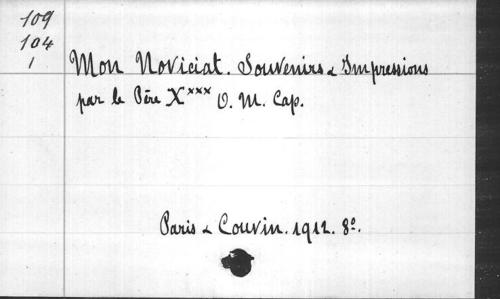 109
104
1
Mon Noviciat. Souvenirs & Impressions
par le Père Xxxx O. M. Cap.
Paris & Couvin. 1912. 8º.